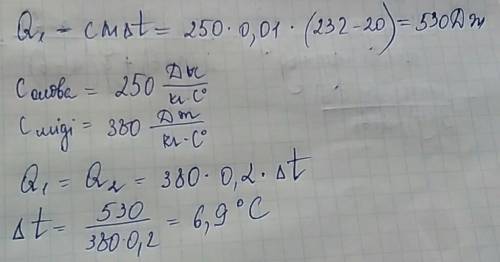 Q₁ = cмΔt = 250·0,01·(232-20) = 530Дж
Cолова = 250 Дж/кг·C°
Cміді = 380 Дж/кг·C°
Q₁ = Q₂ = 380·0,2·Δt
Δt = 530/380·0,2 = 6,9°C